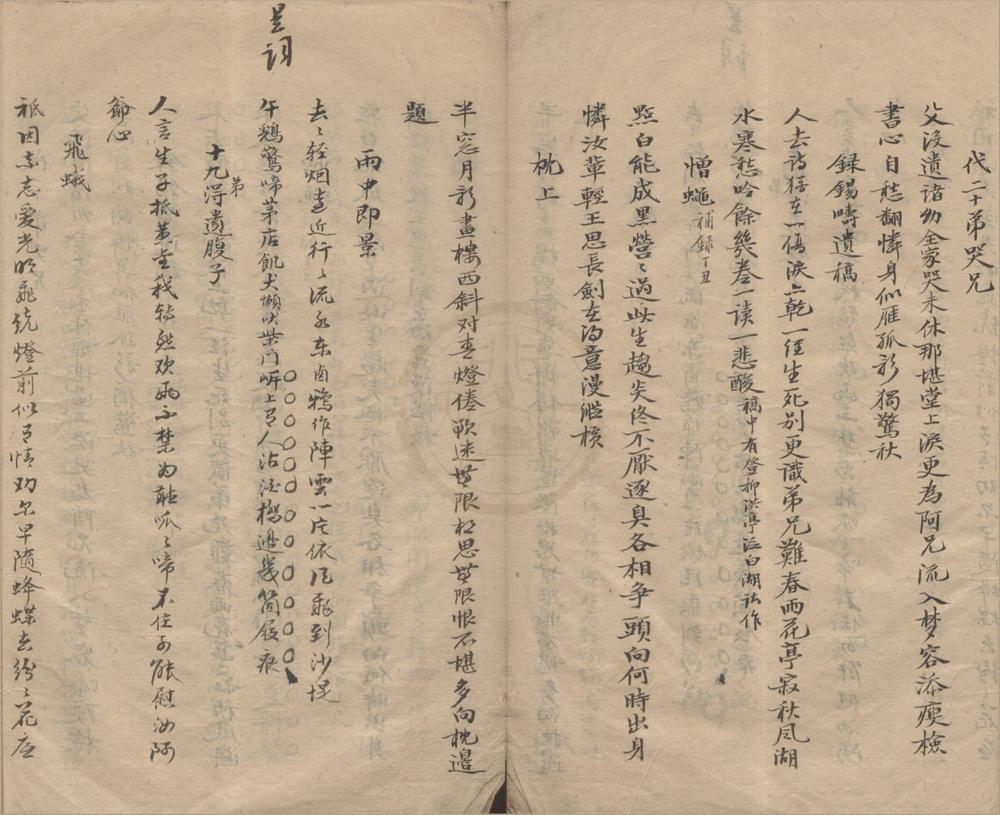 代二十弟哭兄
父没遺諸幼全家哭未休那堪堂上淚更為阿兄流入梦容添瘦檢
書心自愁翻憐身似雁孤影獨驚秋
録錫疇遺稿
人去詩猶在一偈淚亠乾一徑生死别更識弟兄難春雨花亭寂秋風湖
水寒愁吟餘幾卷一读一悲酸稿中有登柳洪亭泛白湖诸作
憎蠅補録丁丑
點白能成黑營〻過此生趨炎终不厭逐臭各相争頭向何時出身
憐汝輩輕王思長劍在得意漫縱横
枕上
半窓月影畫樓西斜对青燈倦欲迷無限相思無限恨不堪多向枕邊
題
雨中即景
去〻轻烟遠近行〻流水东西鴉作陣雲一片依风飛到沙堤
午鷄驚啼茅店飢犬懒吠柴门岍上有人沽酒橋邊幾箇屐痕
十九弟得遺腹子
人言生子抵黄金我转熬欢兩不禁为聽呱〻啼不住可能慰汝阿
爺心
飛蛾
祗因素志爱光明飛绕燈前似有情劝尔早隨蜂蝶去纷〻花底
是词